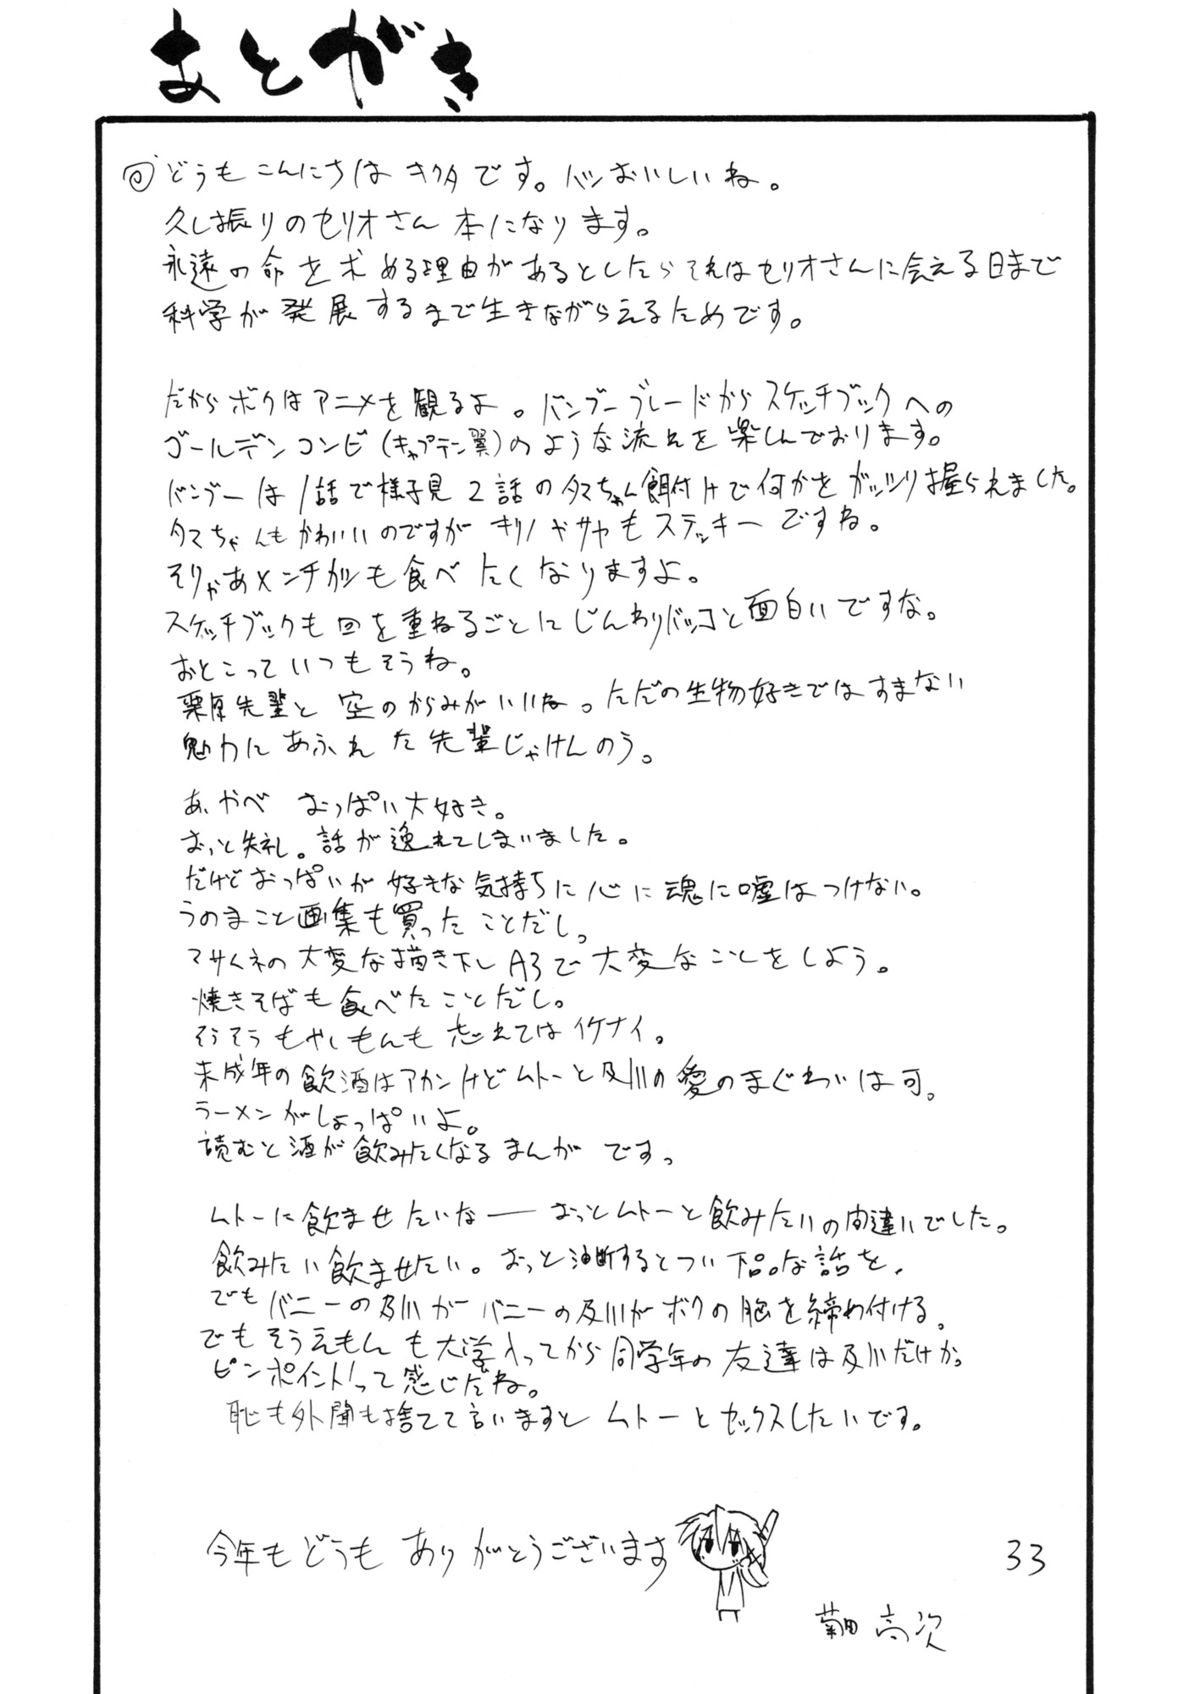 あとがき
どうもこんにちは キクタです。パンおいしいね。
久し振りのセリオさん本になります。
永遠の命を求める理由があるとしたらそれはセリオさんに会える日まで
科学が発展するまで生きながらえるためです。
だからボクはアニメを観るよ。バンブーブレードからスケッチブックへの
ゴールデンコンビ(キャプテン翼)のような流れを楽しんでおります。
バンブーは1話で様子見 2話のタマちゃん餌付けで何かをガッツリ握られました。
タマちゃんもかわいいのですが キリノやサヤもステッキーですね。
そりゃあメンチカツも食べたくなりますよ。
スケッチブックも回を重ねるごとにじんわりバッコンと面白いですな。
おとこっていつもそうね。
栗原先輩と空のからみがいいね。ただの生物好きではすまない
魅力にあふれた先輩じゃけんのう。
あ、やべ おっぱい大好き。
おっと失礼。話が逸れてしまいました。
だけどおっぱいが好きな気持ちに心に魂に嘘はつけない。
うのまこと画集も買ったことだし。
マサムネの大変な描き下しA3で大変なことをしよう。
焼きそばも食べたことだし。
そうそうもやしもんも忘れてはイケナイ。
未成年の飲酒はアカンけどムトーと及川の愛のまぐわいは可。
ラーメンがしょっぱいよ。
読むと酒が飲みたくなるまんがです。
ムトーに飲ませたいなー おっとムトーと飲みたいの間違いでした。
飲みたい飲ませたい。おっと油断するとつい下品な話を、
でもバニーの及川がバニーの及川がボクの胸を締め付ける。
でもそうえもんも大学入ってから同学年の友達は及川だけか。
ピンポイント!って感じだね。
恥も外聞も捨てて言いますとムトーとセックスしたいです。
今年もどうもありがとうございます
33
菊田 高次